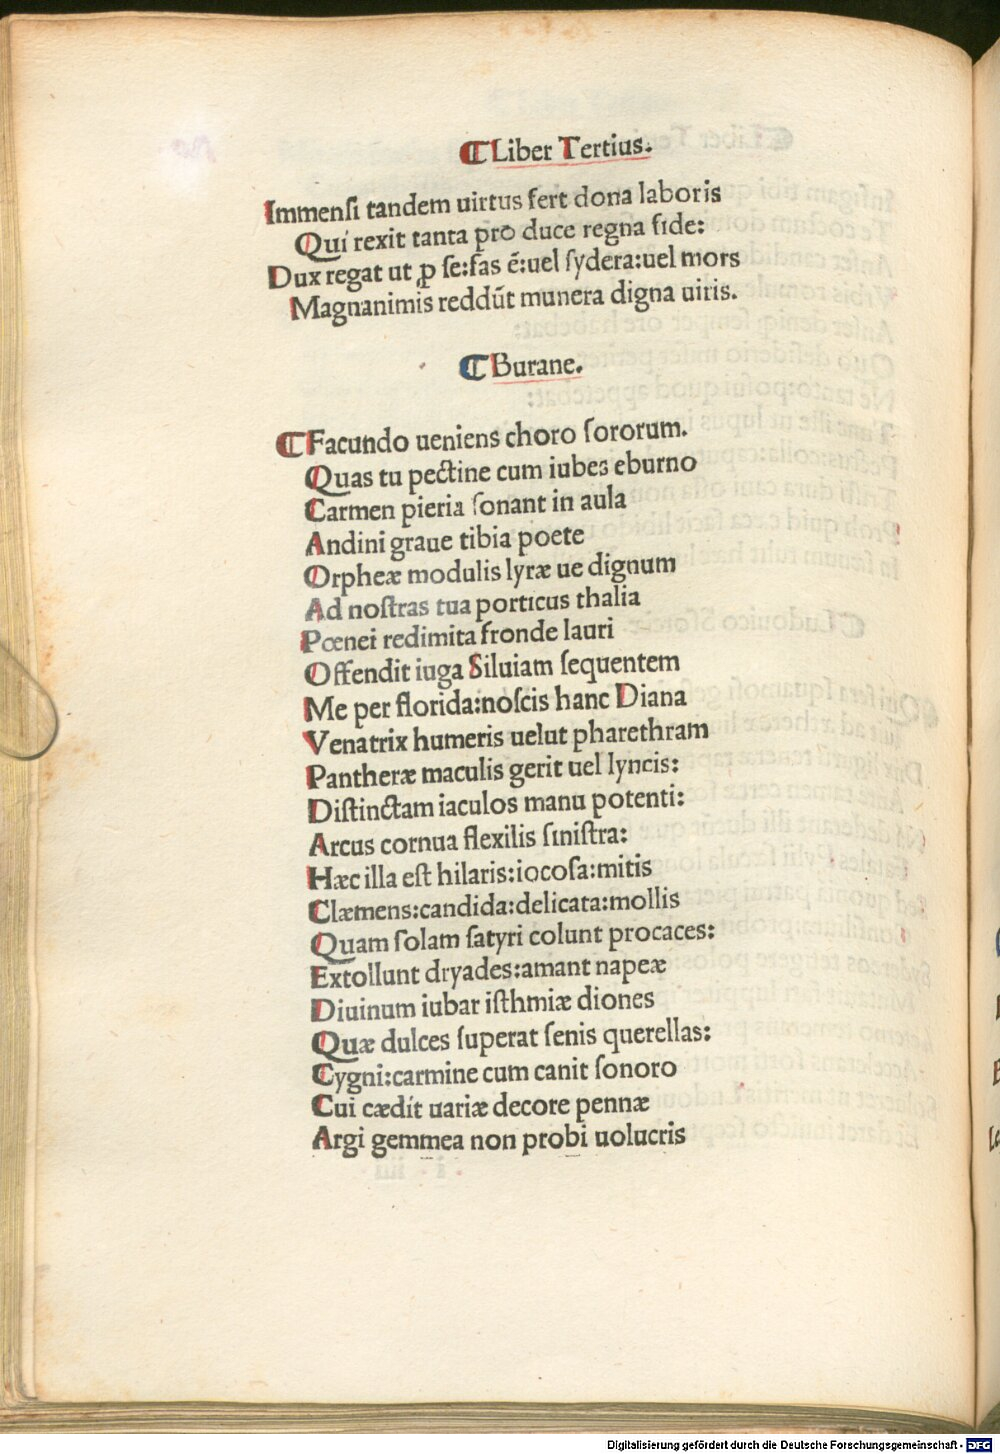 ¶Liber Tertius.
Immenſi tandem uirtus fert dona laboris
Qui rexit tanta pro duce regna fide:
Dux regat ut ꝑ ſe:fas ē:uel ſydera:uel mors
Magnanimis reddūt munera digna uiris.
¶Burane.
¶Facundo ueniens choro ſororum.
Quas tu pectine cum iubes eburno
Carmen pieria ſonant in aula
Andini graue tibia poete
Orpheæ modulis lyræ ue dignum
Ad noſtras tua porticus thalia
Pœnei redimita fronde lauri
Offendit iuga Siluiam ſequentem
Me per florida:noſcis hanc Diana
Venatrix humeris uelut pharethram
Pantheræ maculis gerit uel lyncis:
Diſtinctam iaculos manu potenti:
Arcus cornua flexilis ſiniſtra:
Hæc illa eſt hilaris:iocoſa:mitis
Clæmens:candida:delicata:mollis
Quam ſolam ſatyri colunt procaces:
Extollunt dryades:amant napeæ
Diuinum iubar iſthmiæ diones
Quæ dulces ſuperat ſenis querellas:
Cygni:carmine cum canit ſonoro
Cui cædit uariæ decore pennæ
Argi gemmea non probi uolucris
Digitalisierung gefördert durch die Deutsche Forschungsgemeinschaft - DFG